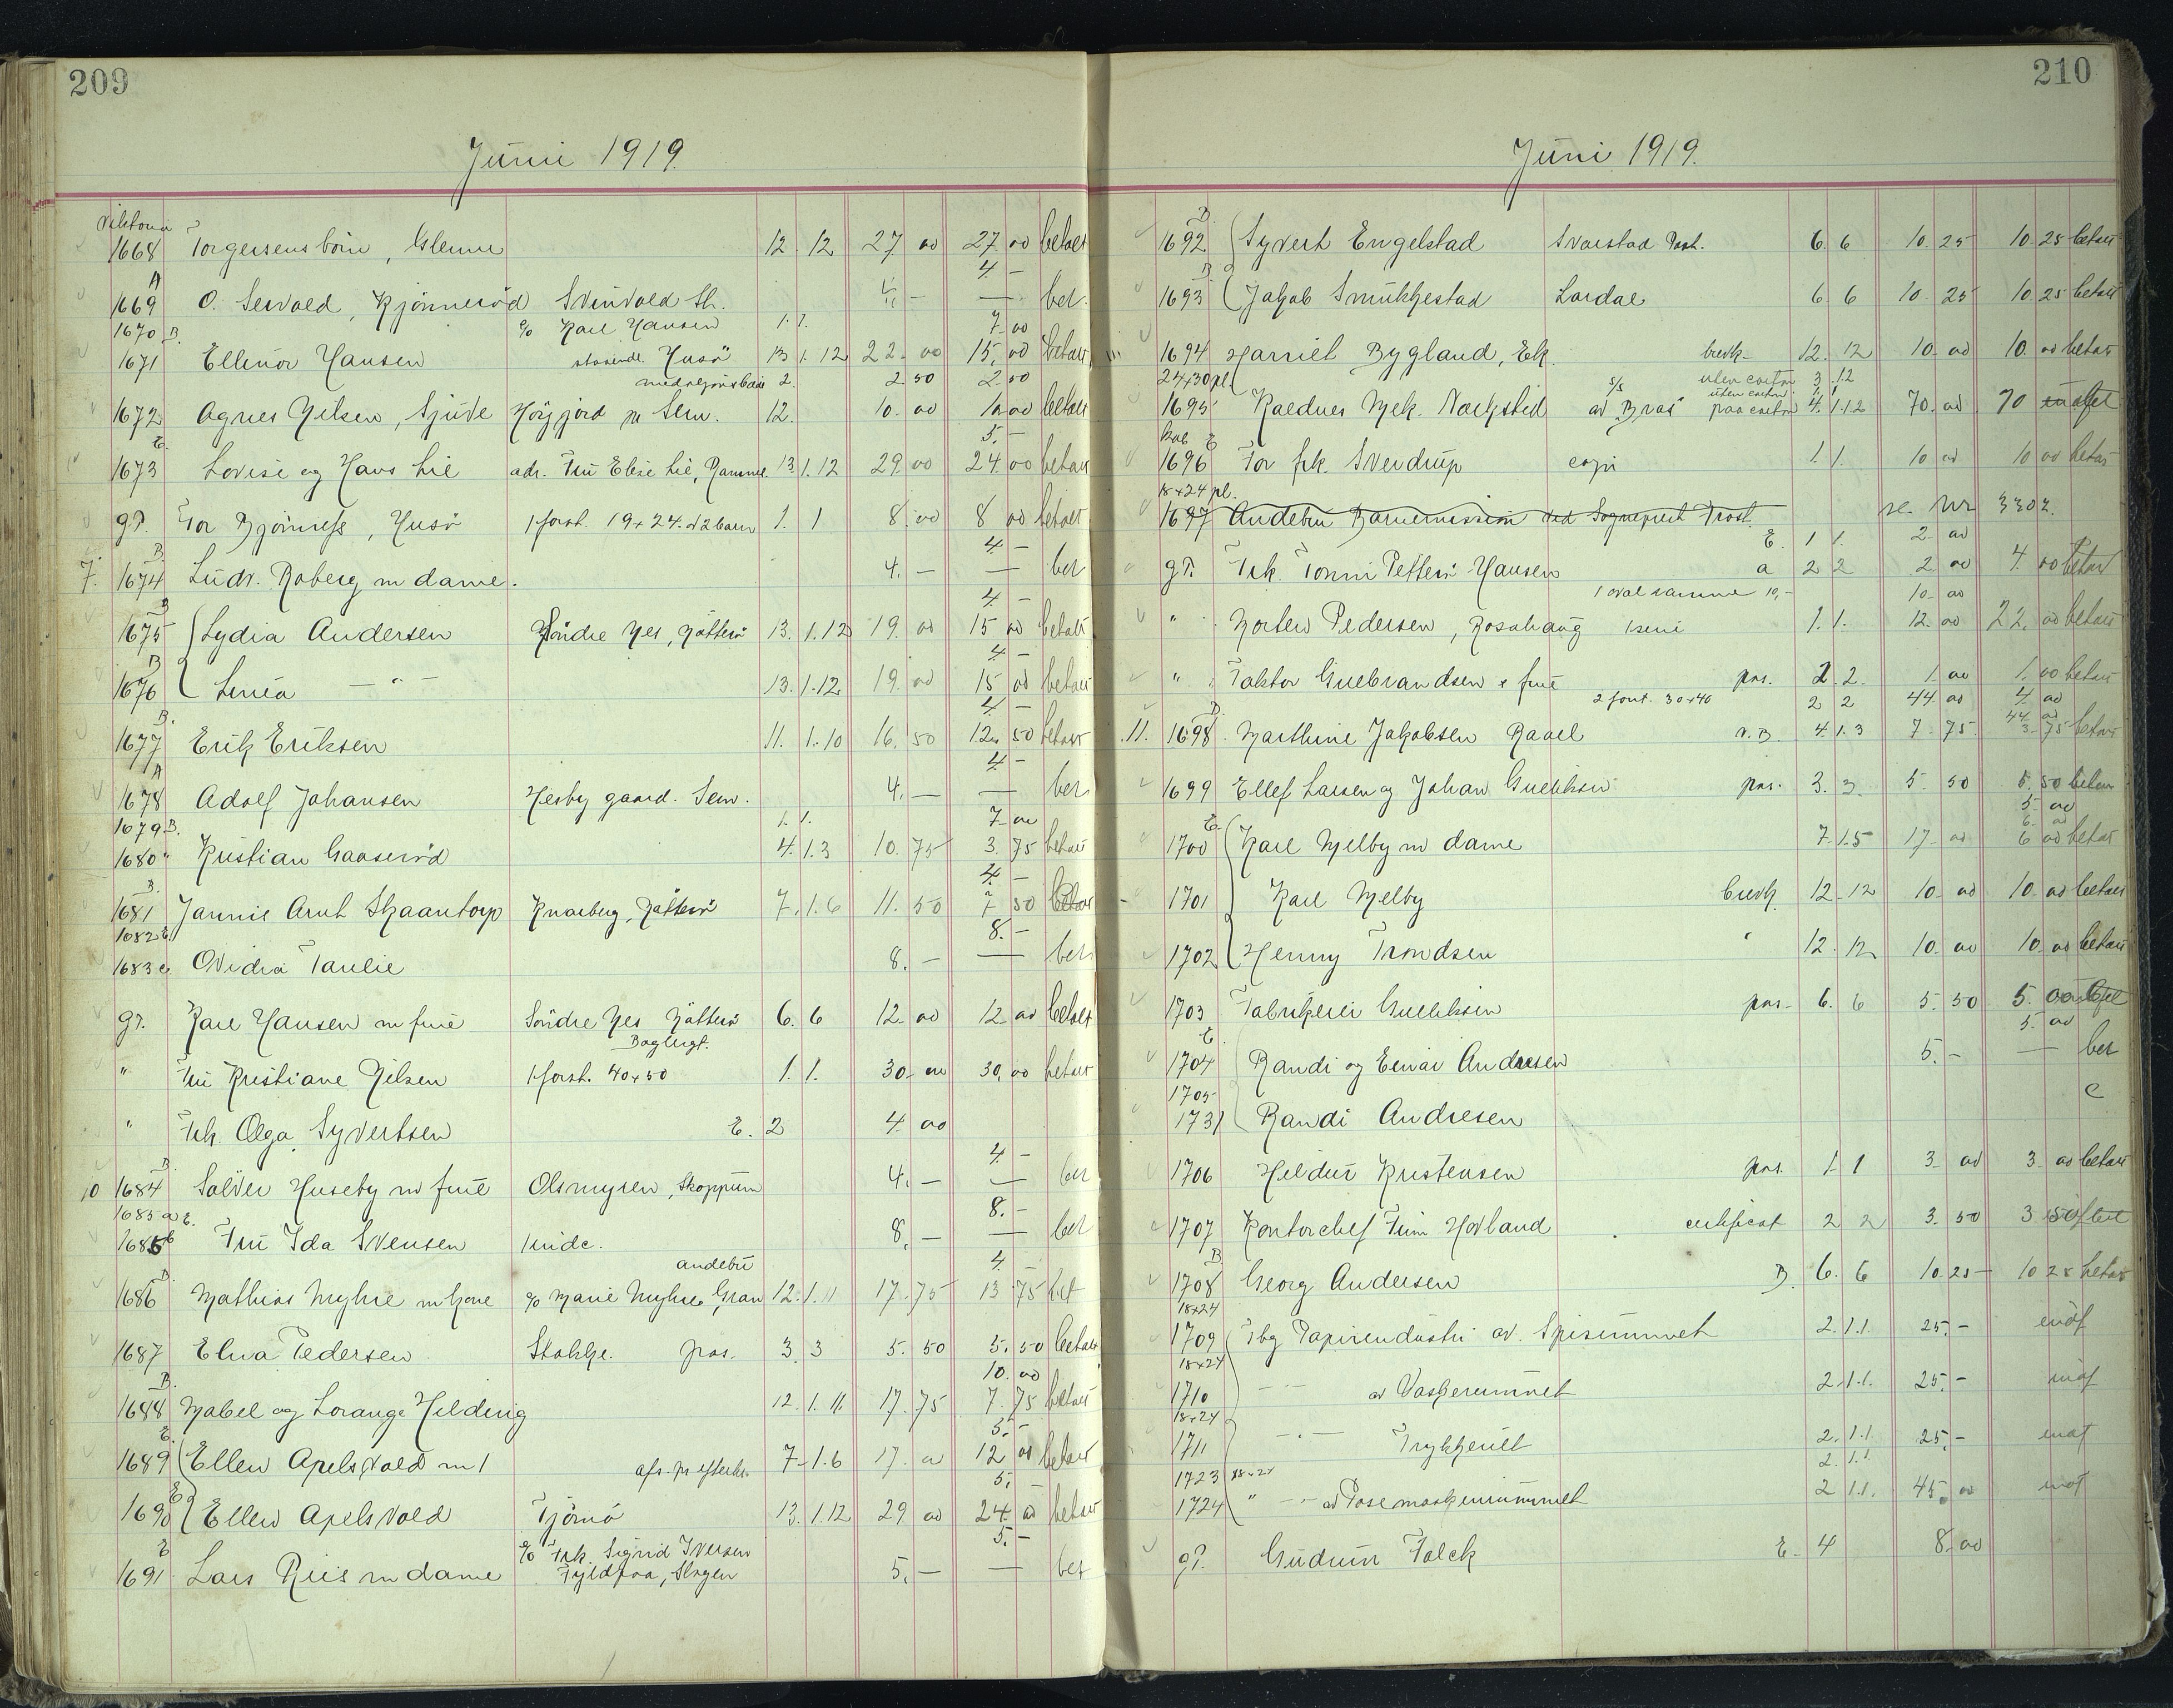 209
Juni 1919.
Viktoria
1668 Torgersens börn, Glenne 12. 12 27. 00 27. 00 betalt
A 4. –
1669 O. Sevald, Kjönneröd Svinvold St. – — bet.
1670 B. c/o Karl Hansen 1. 1. 7. 00
1671 Ellinor Hansen Husö 13. 1. 12 22. 00 15. 00 betalt
2. 2. 50 2. 50
1672 Agnes Nilsen, Gjude Höygjord pr Sem. 12. 10. 00 10. 00 betalt
E. 5. –
1673 Lovise og Hans Lie adr. Fru Elise Lie, Ramnes. 13. 1. 12 29. 00 24. 00 betalt
gP. Tor Björnness, Husö 1 forst. 19 x 24. 1. 1 8. 00 8 00 betalt
B. 4. –
7. 1674 Ludv. Roberg m dame. 4. – — bet
B 4. –
1675 Lydia Andersen Söndre Nes, Nötterö 13. 1. 12 19. 00 15 00 betalt
B 4. –
1676 Linia — " — 13. 1. 12 19. 00 15 00 betalt
B. 4. –
1677 Erik Eriksen 11. 1. 10 16. 50 12. 50 betalt
A 4. –
1678 Adolf Johansen Hesby gaard. Sem. 4. — — bet
1679 B. 1. 1. 7. 00
1680 " Kristian Gaaseröd 4. 1. 3 10. 75 3. 75 betalt
B. 4. –
1681 Jannie Arnt Skaantorp Knarberg, Nötterö 7. 1. 6 11. 50 7 50 betalt
1682 E. 8. –
1683 e. Ovidia Taulie 8. – — bet
gP. Karl Hansen m frue Söndre Nes Nötterö 6. 6 12. 00 12. 00 betalt
Baglygt.
" Fru Kristiane Nilsen 1 forst. 40 x 50 1. 1. 30. 00 30. 00 betalt
" Frk. Olga Syvertsen E. 2 4. 00
B. 4. –
10 1684 Sölver Huseby m frue Olsmyren, Skoppum 4. – — bet
1685 a E. 8. –
1685 b Fru Ida Svensen 8. – — bet
B. Andebu 4. –
1686 Mathias Myhre m kone c/o Marie Myhre, Gran 12. 1. 11 17. 75 13 75 bet
1687 Elna Pedersen Stokke. pas. 3. 3 5. 50 5. 50 betalt
B. 10. 00
1688 Mabel og Lorange Hilding 12. 1. 11. 17. 75 7. 75 betalt
E. 5. –
1689 Ellen Apelsvold m 1 afs. pr efterkr. 7. 1. 6 17. 00 12 00 betalt
E 5. –
1690 Ellen Apelsvold Tjömö 13. 1. 12 29 00 24 00 betalt
E c/o Frk. Sigrid Iversen 5. –
1691 Lars Riis m dame Fyldpaa, Slagen 5. – — bet
210
Juni 1919.
B.
1692 Syvert Engelstad Svarstad Post. 6. 6 10. 25 10. 25 betalt
B
1693 Jakob Smukkestad Lardal 6 6 10. 25 10. 25 betalt
1694 Harriet Bygland, Ek. brevk. 12. 12 10. 00 10. 00 betalt
24 x 30 pl. uten carton 3 12
1695 Kaldnes Mek. Verksted s/s av "Bras" uten carton paa carton 4. 1. 12 70. 00 70
Kab. E
1696 For frk. Sverdrup copi 1. 1. 10 00 10 00 betalt
18 x 24 pl.
1697 Andebu Barnemission ved Sogneprest Trost. se. Nr 3302.
E. 1 1. 2. 00
gP. Frk. Tonni Petterö Hansen a 2 2 2 00 4. 00 betalt
1 oval ramme 10,– 10. 00
" Morten Pedersen, Rosahaug 1. 1. 12. 00 22. 00 betalt
" Faktor Gulbrandsen & frue pas. 2. 2. 1. 00 1. 00 betalt
2 font. 30 x 40 2 2 44. 00 4. 00
B. 44. 00
11. 1698 Marthine Jakobsen Ravel v. B. 4. 1. 3 7. 75. 3. 75 betalt
1699 Ellef Larsen og Johan Gulliksen pas. 3. 3. 5. 50 5. 50 betalt
5. 00
E. 6. 00
1700 Karl Melby m dame 7. 1. 5 17. 00 6 00 betalt
1701 Karl Melby brevk. 12. 12 10. 00 10. 00 betalt
1702 Henny Trondsen " 12. 12 10. 00 10. 00 betalt
1703 Fabrikeier Gulliksen pas. 6. 6 5. 50 5.
E. 5. 00
1704 Randi og Einar Andresen 5. – — bet
1705
1731 Randi Andresen e
1706 Heldur Kristensen pas. 1. 1 3. 00 3. 00 betalt
1707 Kontorchef Finn Hovland certificat 2 2 3. 50 3
B
1708 Georg Andersen B. 6. 6 10. 25 10 25 betalt
18x24
1709 Tbg Papirindustri av. Spiserummet 2. 1. 1. 25. – motf
18x24
1710 — " — av Vaskerummet 2. 1. 1. 25. – motf
18x24
1711 — " — Trykkeriet 2. 1. 1. 25. – motf
1723 18x24 2. 1. 1.
1724 " — " — av Posemaskinrummet 2 1. 1. 45. 00 motf
gP. Gudrun Falck E. 4 8. 00